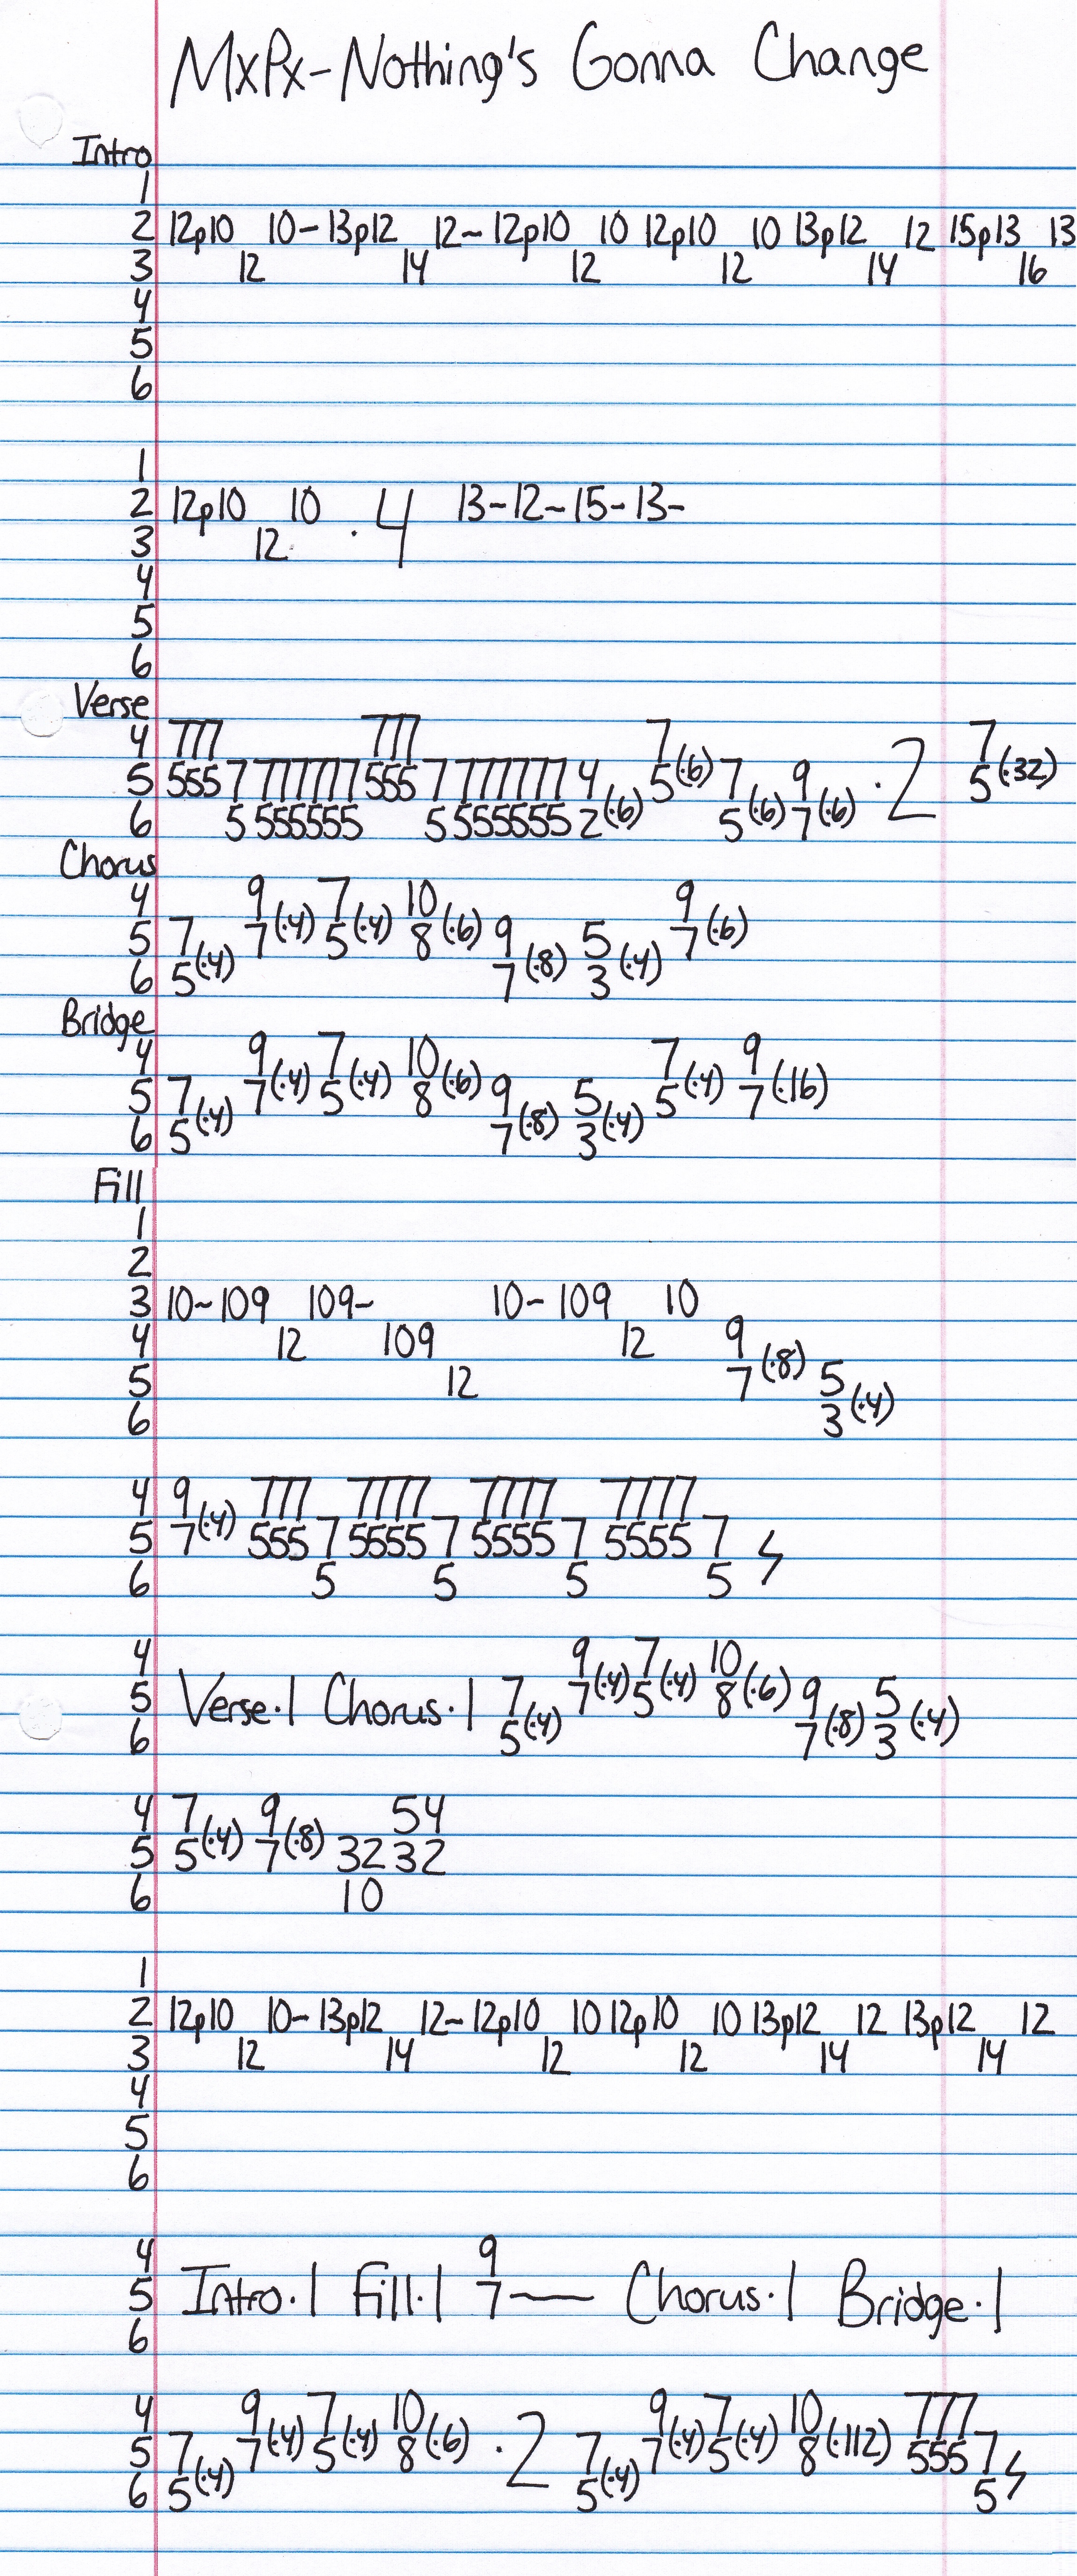 MxPx-Nothing's Gonna Change
Intro
1
2 12p10 10-13p12 12~12p10 10 12p10 10 13p12 12 15p13 13
3 12 14 12 12 14 16
4
5
6
1
2 12p10 10 ·4 13-12~15-13-
3 12
4
5
6
Verse
4 777 777 7 7
5 555 7 777777 555 7 777777 4 5(·6) 7 9 ·2 5(·32)
6 5 555555 5 555555 2(·6) 5(·6) 7(·6)
Chorus
4 9 7 10 9
5 7 7(·4) 5(·4) 8(·6) 9 5 7(·6)
6 5(·4) 7(·8) 3(·4)
Bridge
4 9 7 10 7 9
5 7 7(·4) 5(·4) 8(·6) 9 5 5(·4) 7(·16)
6 5(·4) 7(·8) 3(·4)
Fill
1
2
3 10~109 109~ 10-109 10
4 12 109 12 9
5 12 7(·8) 5
6 3(·4)
4 9 777 7777 7777 7777
5 7(·4) 555 7 5555 7 5555 7 5555 7
6 5 5 5 5
4 9 7 10
5 Verse·1 Chorus·1 7 7(·4) 5(·4) 8(·6) 9 5
6 5(·4) 7(·8) 3(·4)
4 7 9 54
5 5(·4) 7(·8) 32 32
6 10
1
2 12p10 10-13p12 12~12p10 10 12p10 10 13p12 12 13p12 12
3 12 14 12 12 14 14
4
5
6
4 9
5 Intro·1 Fill·1 7— Chorus·1 Bridge·1
6
4 9 7 10 9 7 10 777
5 7 7(·4) 5(·4) 8(·6) ·2 7 7(·4) 5(·4) 8(·112) 555 7
6 5(·4) 5(·4) 5